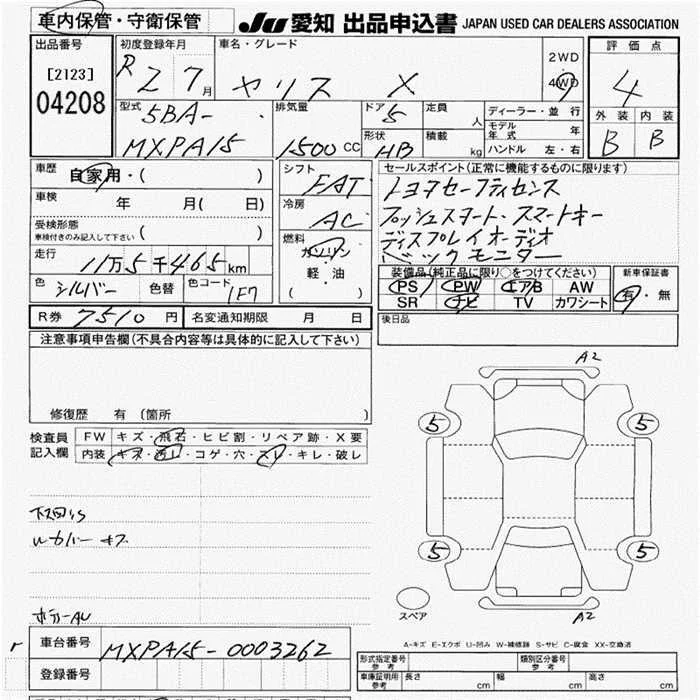 車内保管・守衛保管
JU 愛知 出品申込書 JAPAN USED CAR DEALERS ASSOCIATION
出品番号
[2123]
04208
初度登録年月
R 2 7月
車名・グレード
ヤリス X
2WD
・
4WD
評価点
4
外装 内装
B B
型式
5BA-
MXPA15
排気量
1500 CC
ドア
5
形状
HB
定員
人
積載
kg
ディーラー・並行
モデル年式 年
ハンドル 左・右
車歴
自家用・( )
車検
年 月( 日)
受検形態
車検付きのみ記入して下さい ( )
走行
11万5千465km
色
シルバー
色替
色コード
1F7
シフト
FAT
冷房
AC
燃料
ガソリン
軽・油
( )
セールスポイント(正常に機能するものに限ります)
トヨタセーフティセンス
プッシュスタート・スマートキー
ディスプレイオーディオ
バックモニター
装備品(純正品に限り○をつけてください)
PS PW エアB AW
SR ナビ TV カワシート
新車保証書
有・無
R券 7510円
名変通知期限 月 日
後日品
注意事項申告欄(不具合内容等は具体的に記入して下さい)
修復歴 有(箇所 )
検査員
記入欄
FW キズ・飛石・ヒビ割・リペア跡・X要
内装 キズ・汚レ・コゲ・穴・スレ・キレ・破レ
下回りS
ボデーAU
A2
5 5
5 5
スペア
A2
A-キズ E-エクボ U-凹み W-補修跡 S-サビ C-腐食 XX-交換済
r
車台番号
MXPA15-0003262
登録番号
形式指定番号
参考
類別区分番号
参考
車庫証明用
参考
長さ cm
幅 cm
高さ cm